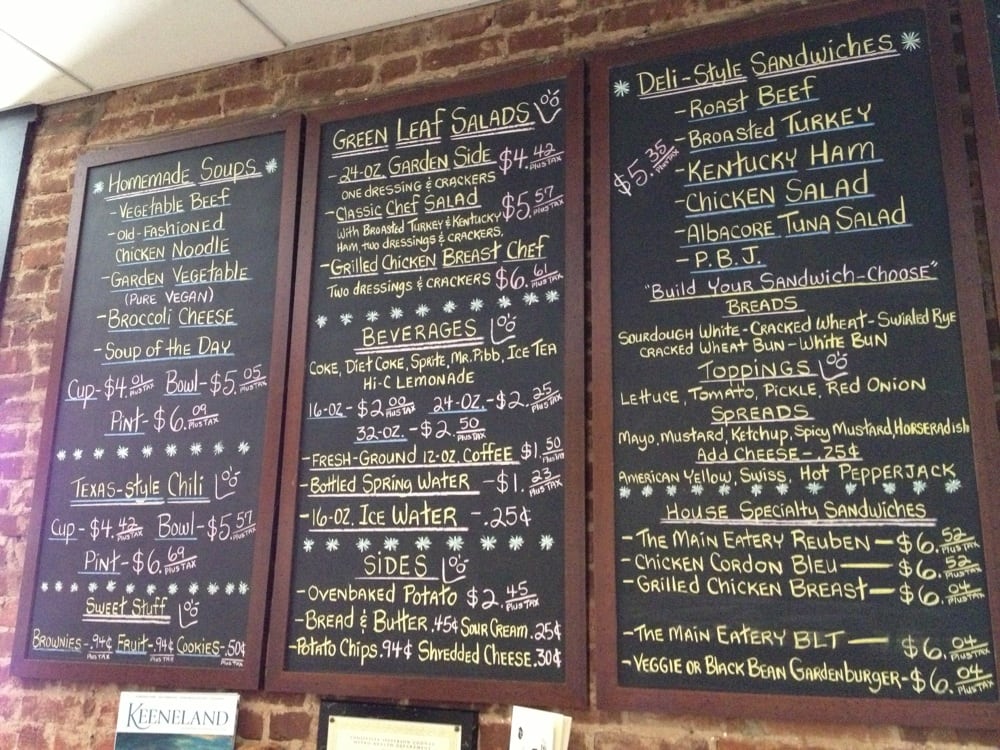 Homemade Soups
- Vegetable Beef
- Old-Fashioned
Chicken Noodle
- Garden Vegetable
(Pure Vegan)
- Broccoli Cheese
- Soup of the Day
Cup - $4.01 Plus Tax Bowl - $5.05 Plus Tax
Pint - $6.09 Plus Tax
Texas-Style Chili
Cup - $4.42 Plus Tax Bowl - $5.57 Plus Tax
Pint - $6.69 Plus Tax
Sweet Stuff
Brownies - .94¢ Plus Tax Fruit - .94¢ Plus Tax Cookies - .50¢ Plus Tax
Green Leaf Salads
- 24-oz. Garden Side $4.42 Plus Tax
One dressing & crackers
- Classic Chef Salad $5.57 Plus Tax
With Broasted Turkey & Kentucky
Ham, two dressings & crackers.
- Grilled Chicken Breast Chef
Two dressings & crackers $6.61 Plus Tax
Beverages
Coke, Diet Coke, Sprite, Mr. Pibb, Ice Tea
Hi-C Lemonade
16-oz - $2.00 Plus Tax 24-oz. - $2.25 Plus Tax
32-oz. - $2.50 Plus Tax
- Fresh-Ground 12-oz. Coffee $1.50 Plus Tax
- Bottled Spring Water - $1.23 Plus Tax
- 16-oz. Ice Water - .25¢
Sides
- Ovenbaked Potato $2.45 Plus Tax
- Bread & Butter .45¢ Sour Cream .25¢
- Potato Chips .94¢ Shredded Cheese .30¢
Deli-Style Sandwiches
- Roast Beef
- Broasted Turkey
$5.35 Plus Tax
- Kentucky Ham
- Chicken Salad
- Albacore Tuna Salad
- P.B.J.
"Build Your Sandwich-Choose"
Breads
Sourdough White - Cracked Wheat - Swirled Rye
Cracked Wheat Bun - White Bun
Toppings
Lettuce, Tomato, Pickle, Red Onion
Spreads
Mayo, Mustard, Ketchup, Spicy Mustard, Horseradish
Add Cheese - .25¢
American Yellow, Swiss, Hot Pepperjack
House Specialty Sandwiches
- The Main Eatery Reuben - $6.52 Plus Tax
- Chicken Cordon Bleu - $6.52 Plus Tax
- Grilled Chicken Breast - $6.04 Plus Tax
- The Main Eatery BLT - $6.04 Plus Tax
- Veggie or Black Bean Gardenburger - $6.04 Plus Tax
Keeneland